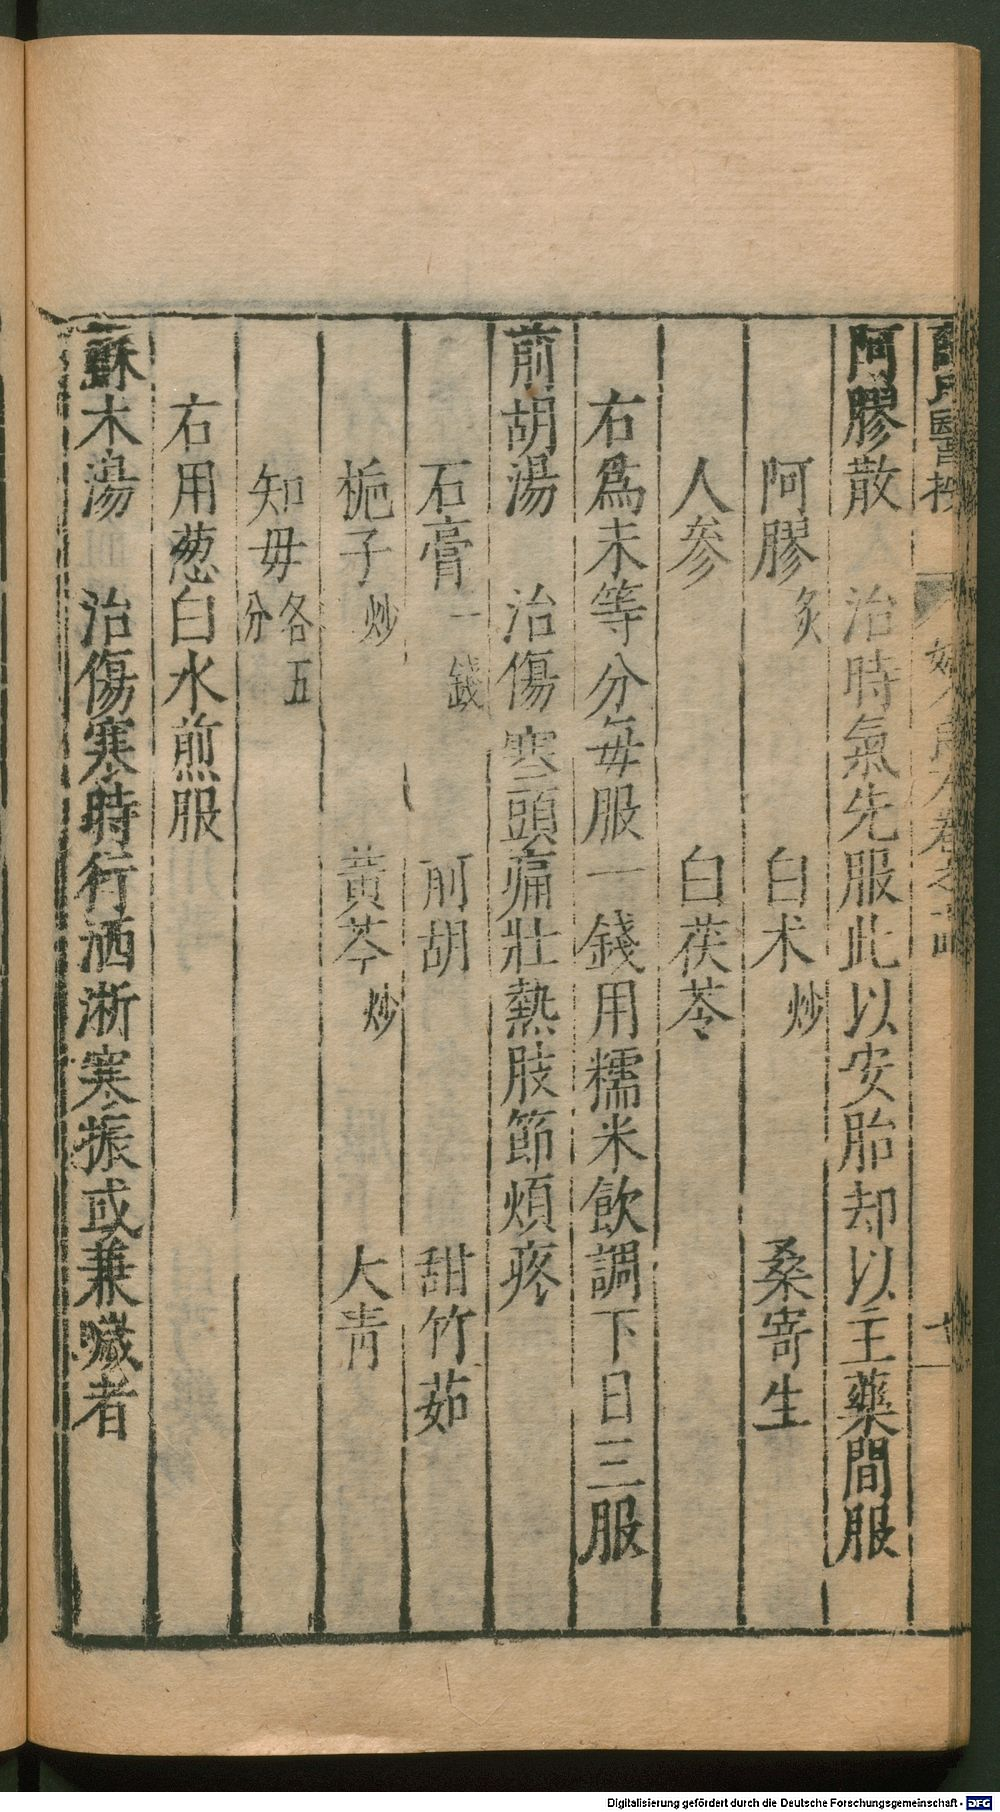 阿膠散　治時氣先服此以安胎却以主藥間服
阿膠炙　白术炒　桑寄生
人參　白茯苓
右爲末等分每服一錢用糯米飲調下日三服
前胡湯　治傷寒頭痛壯熱肢節煩疼
石膏一錢　前胡　甜竹茹
梔子炒　黃芩炒　大青
知母各五分
右用葱白水煎服
蘇木湯　治傷寒時行洒淅寒振或兼噦者
Digitalisierung gefördert durch die Deutsche Forschungsgemeinschaft - DFG